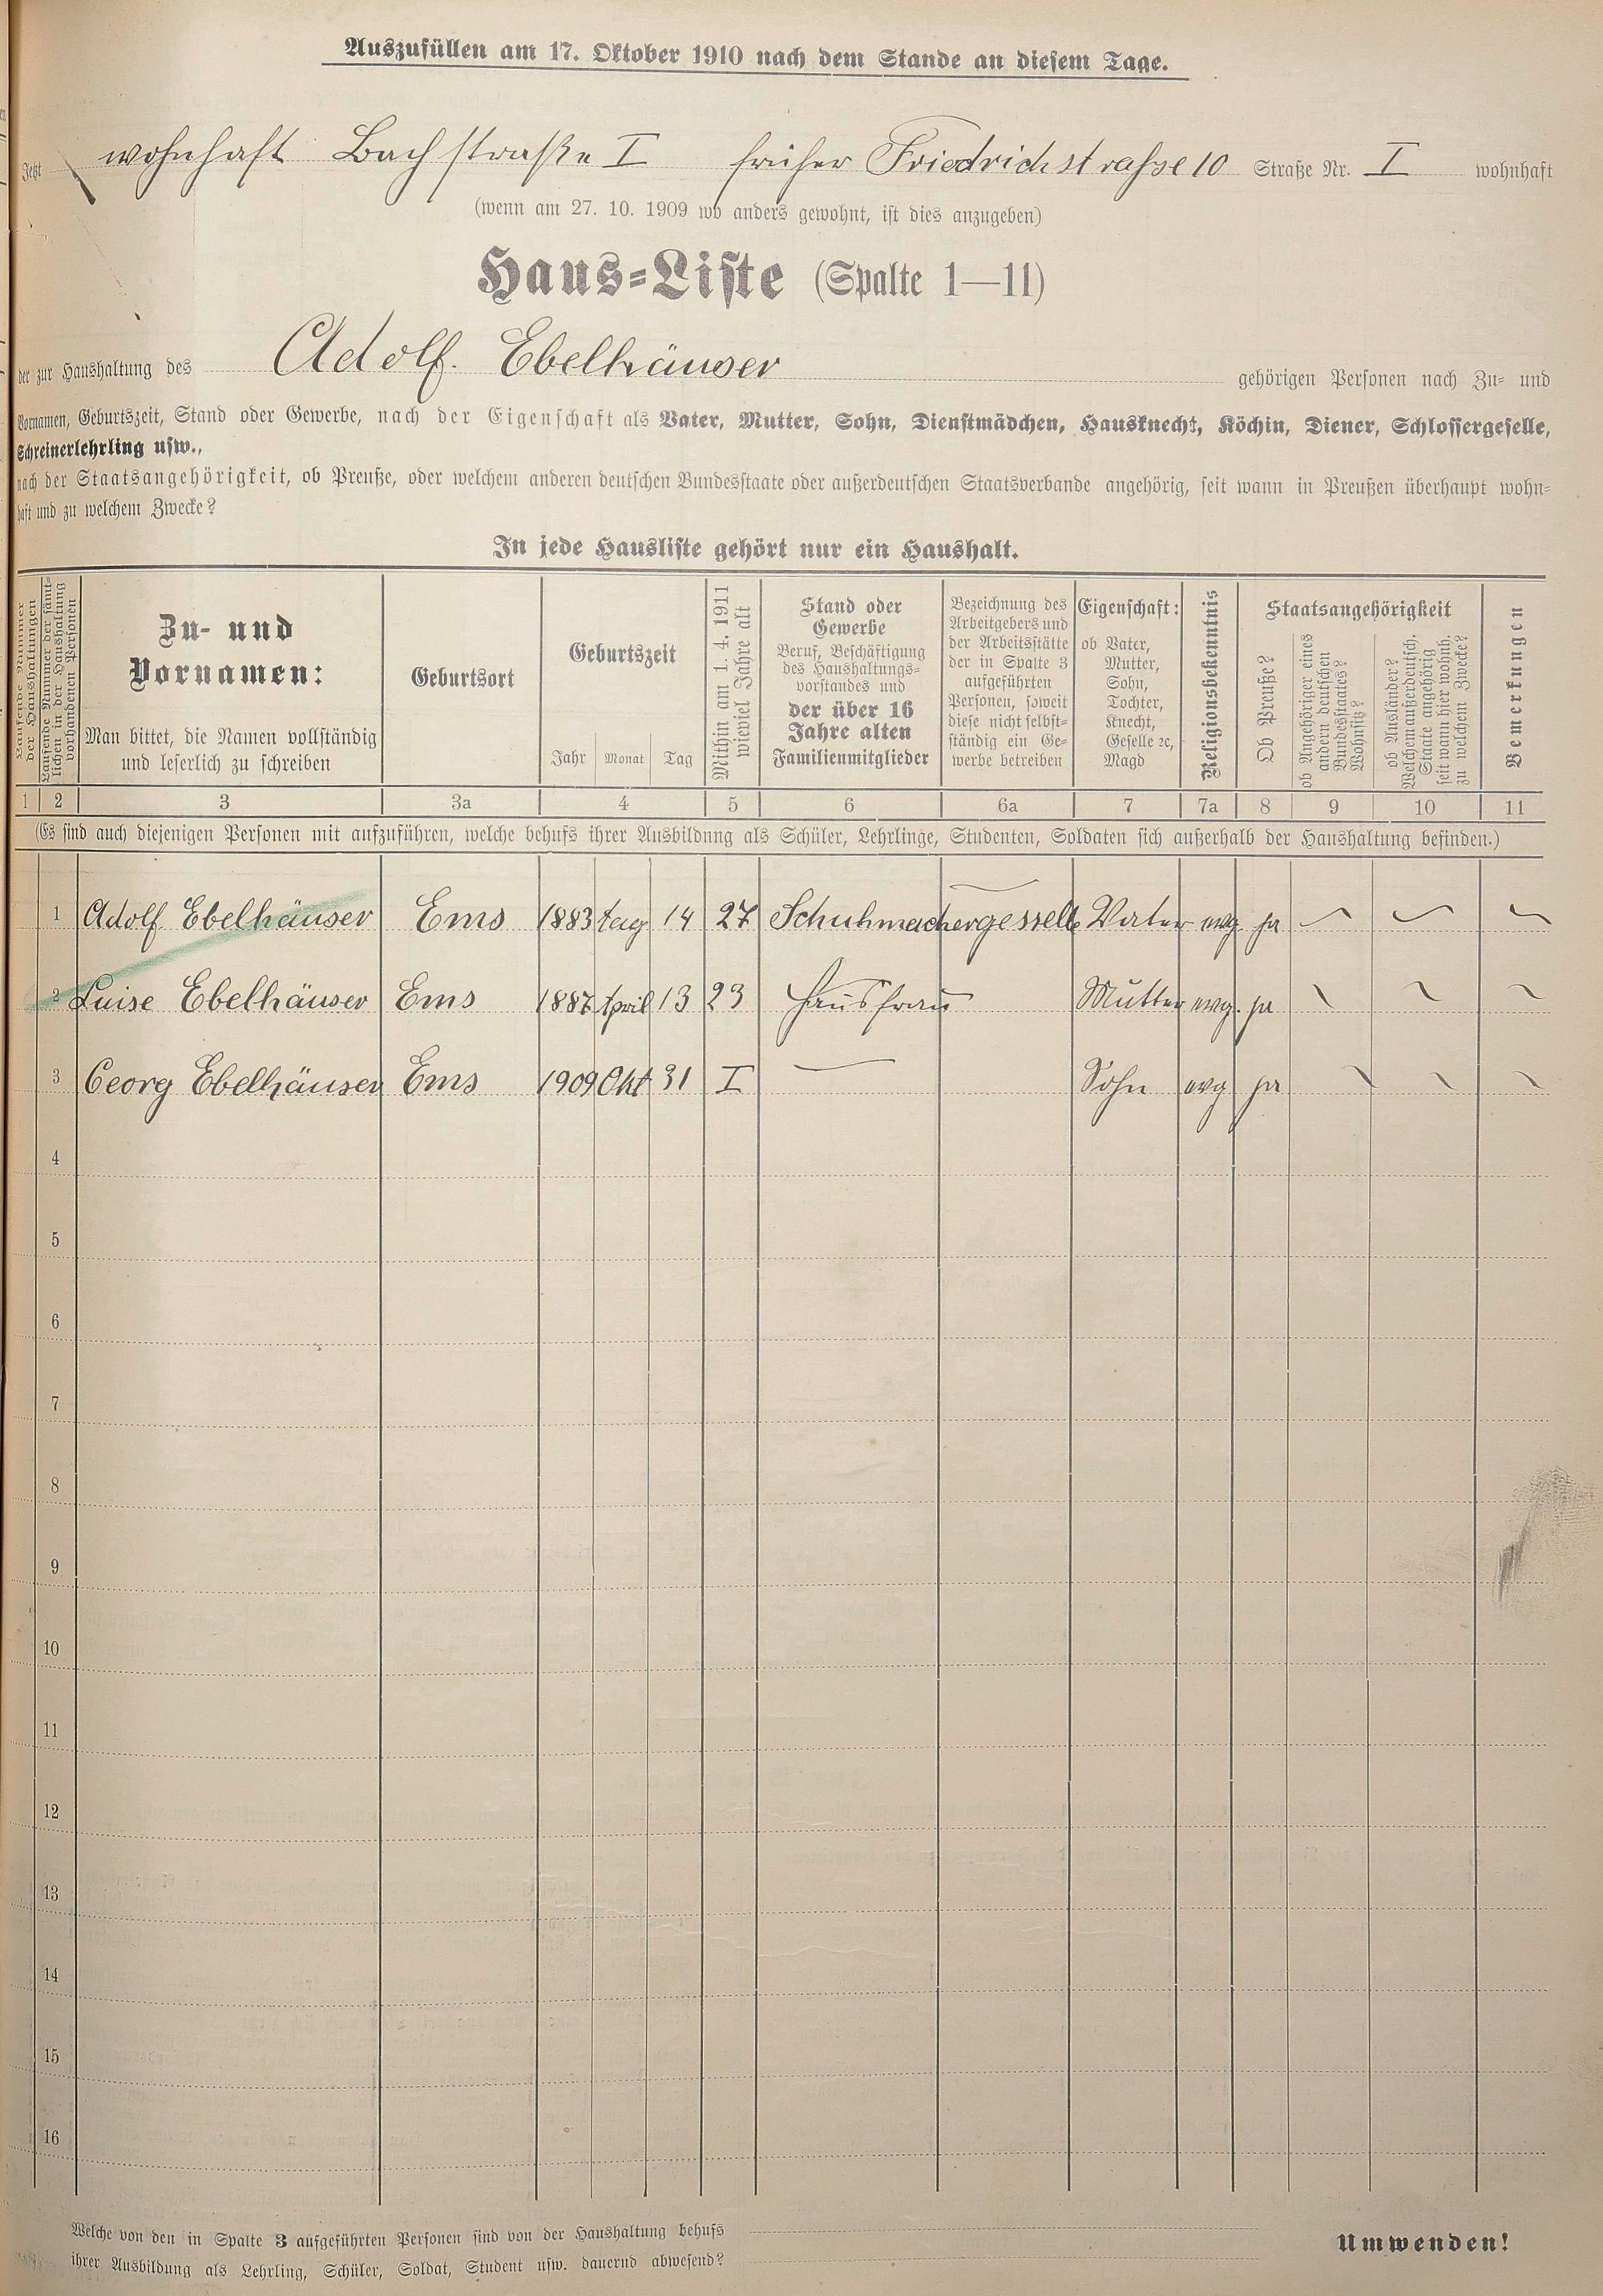 Auszufüllen am 17. Oktober 1910 nach dem Stande an diesem Tage.
Jetzt wohnhaft Bachstraße I früher Friedrichstrasse 10 Straße Nr. I wohnhaft
(wenn am 27. 10. 1909 wo anders gewohnt, ist dies anzugeben)
Haus-Liste (Spalte 1—11)
der zur Haushaltung des Adolf. Ebelhäuser gehörigen Personen nach Zu- und
Vornamen, Geburtszeit, Stand oder Gewerbe, nach der Eigenschaft als Vater, Mutter, Sohn, Dienstmädchen, Hausknecht, Köchin, Diener, Schlossergeselle,
Schreinerlehrling usw.,
nach der Staatsangehörigkeit, ob Preuße, oder welchem anderen deutschen Bundesstaate oder außerdeutschen Staatsverbande angehörig, seit wann in Preußen überhaupt wohn-
haft und zu welchem Zwecke?
In jede Hausliste gehört nur ein Haushalt.
Laufende Nummer
der Haushaltungen
Laufende Nummer der sämt-
lichen in der Haushaltung
vorhandenen Personen
Zu- und
Vornamen:
Man bittet, die Namen vollständig
und leserlich zu schreiben
Geburtsort
Geburtszeit
Jahr Monat Tag
Mithin am 1. 4. 1911
wieviel Jahre alt
Stand oder
Gewerbe
Beruf, Beschäftigung
des Haushaltungs-
vorstandes und
der über 16
Jahre alten
Familienmitglieder
Bezeichnung des
Arbeitgebers und
der Arbeitsstätte
der in Spalte 3
aufgeführten
Personen, soweit
diese nicht selbst-
ständig ein Ge-
werbe betreiben
Eigenschaft:
ob Vater,
Mutter,
Sohn,
Tochter,
Knecht,
Geselle ꝛc,
Magd
Religionsbekenntnis
Staatsangehörigkeit
Ob Preuße?
ob Angehöriger eines
andern deutschen
Bundesstaates?
Wohnsitz?
ob Ausländer?
Welchem außerdeutsch.
Staate angehörig
seit wann hier wohnh.
zu welchem Zwecke?
Bemerkungen
1 2 3 3a 4 5 6 6a 7 7a 8 9 10 11
(Es sind auch diejenigen Personen mit aufzuführen, welche behufs ihrer Ausbildung als Schüler, Lehrlinge, Studenten, Soldaten sich außerhalb der Haushaltung befinden.)
1 Adolf Ebelhäuser Ems 1883 14 27 Schuhmachergesselle Vater evg. ja
2 Luise Ebelhäuser Ems 1887 April 13 23 Hausfrau Mutter evg. ja
3 Georg Ebelhäuser Ems 1909 Okt 31 I Sohn evg ja
4
5
6
7
8
9
10
11
12
13
14
15
16
Welche von den in Spalte 3 aufgeführten Personen sind von der Haushaltung behufs
ihrer Ausbildung als Lehrling, Schüler, Soldat, Student usw. dauernd abwesend?
Umwenden!